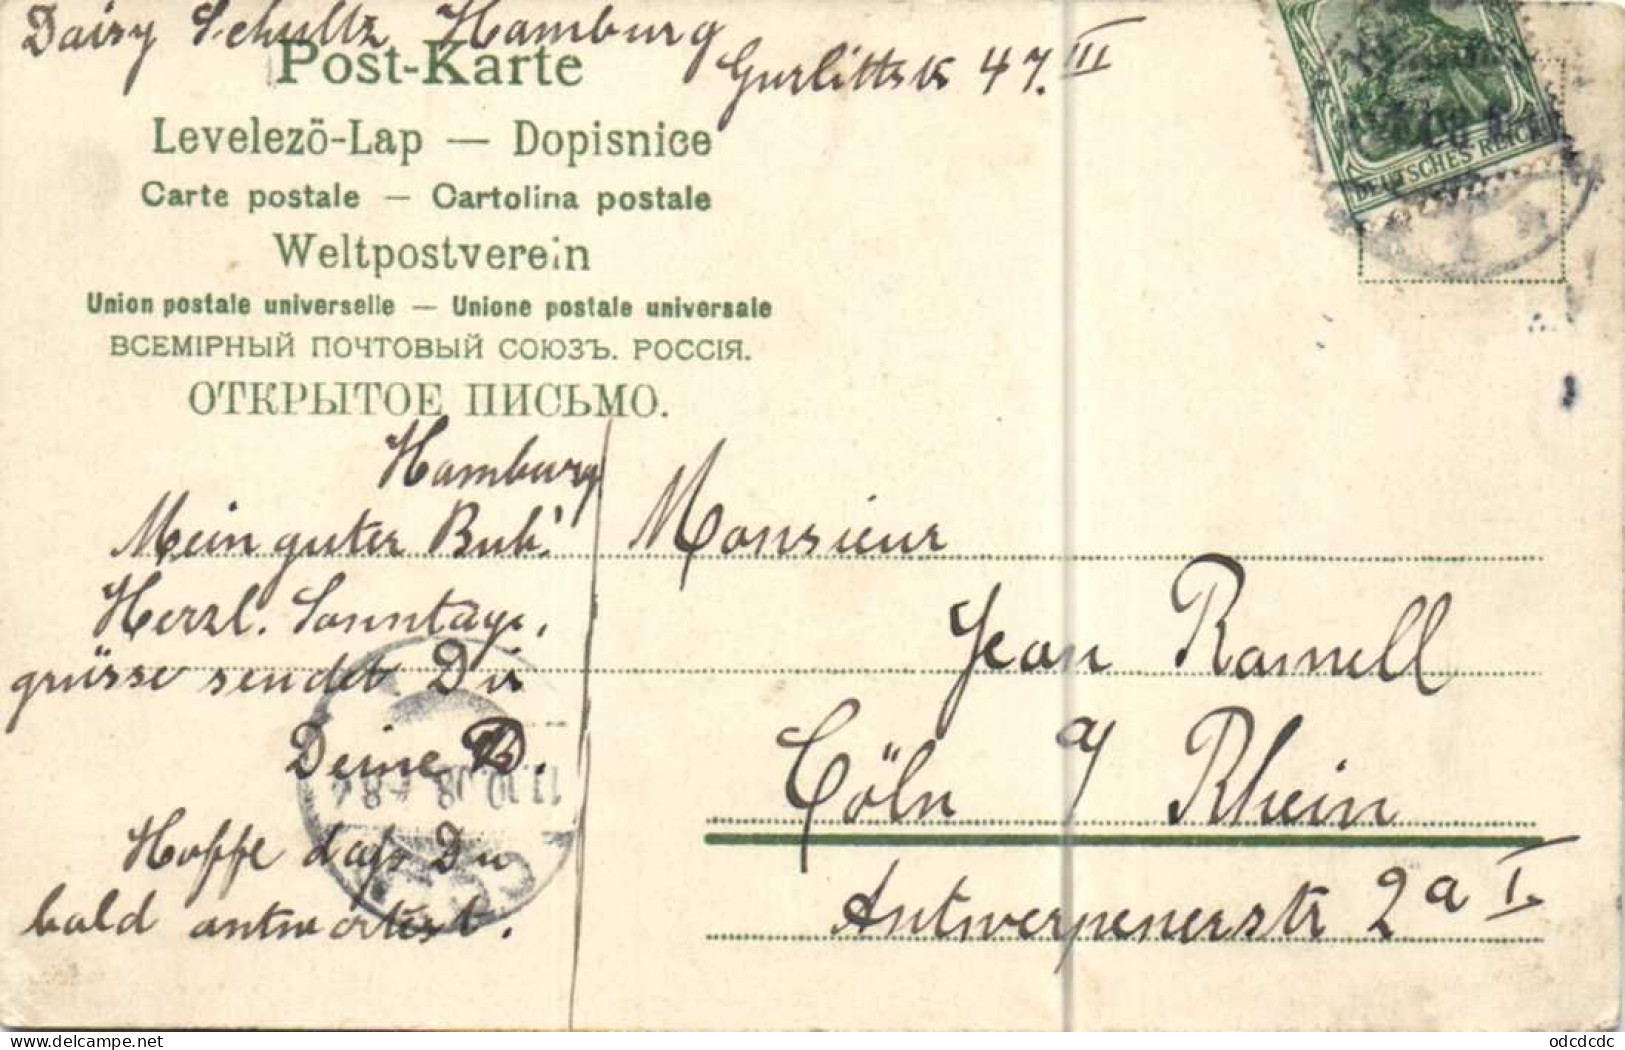 Daisy Schultz Hamburg
Gurlittstr 47. III
Post-Karte
Levelezö-Lap — Dopisnice
Carte postale — Cartolina postale
Weltpostverein
Union postale universelle — Unione postale universale
ВСЕМІРНЫЙ ПОЧТОВЫЙ СОЮЗЪ. РОССІЯ.
ОТКРЫТОЕ ПИСЬМО.
DEUTSCHES REICH
Hamburg
Mein guter Bub!
Herzl. Sonntags,
grüsse sendet Dir
Deine D.
Hoffe daß Du
bald antwortest.
Monsieur
Jean Ramell
Cöln a/ Rhein
Antwerpenerstr 2a I.
www.delcampe.net
odcdcdc